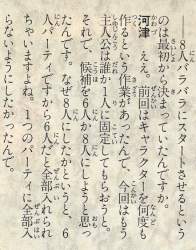 ――8人バラバラにスタートさせるという
のは最初から決まっていたんですか。
河津　ええ。前回はキャラクターを何度も
作るという作業があったんで、今回はもう
主人公は誰か1人に固定してもらおうと。
それで、候補を6人か8人にしようと思っ
たんです。なぜ8人にしたかというと、6
人パーティですから6人だと全部入れられ
ちゃいますよね。1つのパーティに全部入
らないようにしたかったんで。